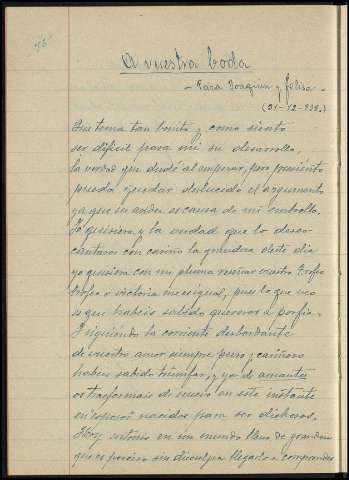 95
A vuestra boda
- Para Joaquin y Felisa -
(31-12-938.)
Que tema tan bonito y como siento
ser dificil para mi su desarrollo,
la verdad que dudé al empezar, pero presiento
pueda quedar deslucido el argumento
ya que su ardor es causa de mi embrollo.
Yo quisiera y la verdad que lo
cantaros con cariño la grandeza de este dia
yo quisiera con mi pluma vuestro trofeo
trofeo o victoria pues lo que veo
es que habeis sabido quereros a porfia.
Y siguiendo la corriente desbordante
de vuestro amor siempre puro y cariñoso
habeis sabido triunfar, y ya de amantes
os trasformais de nuevo en este instante
en esposos nacidos para ser dichosos.
Hoy entrais en un mundo lleno de grandeza
que es preciso sin disculpa llegarlo a comprender